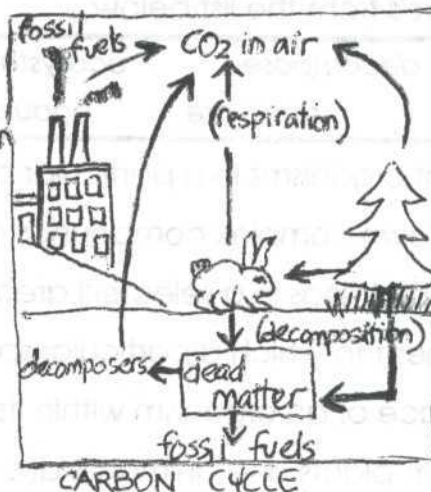 fossil
fuels
CO2 in air
(respiration)
(decomposition)
decomposers
dead
matter
fossil fuels
CARBON CYCLE